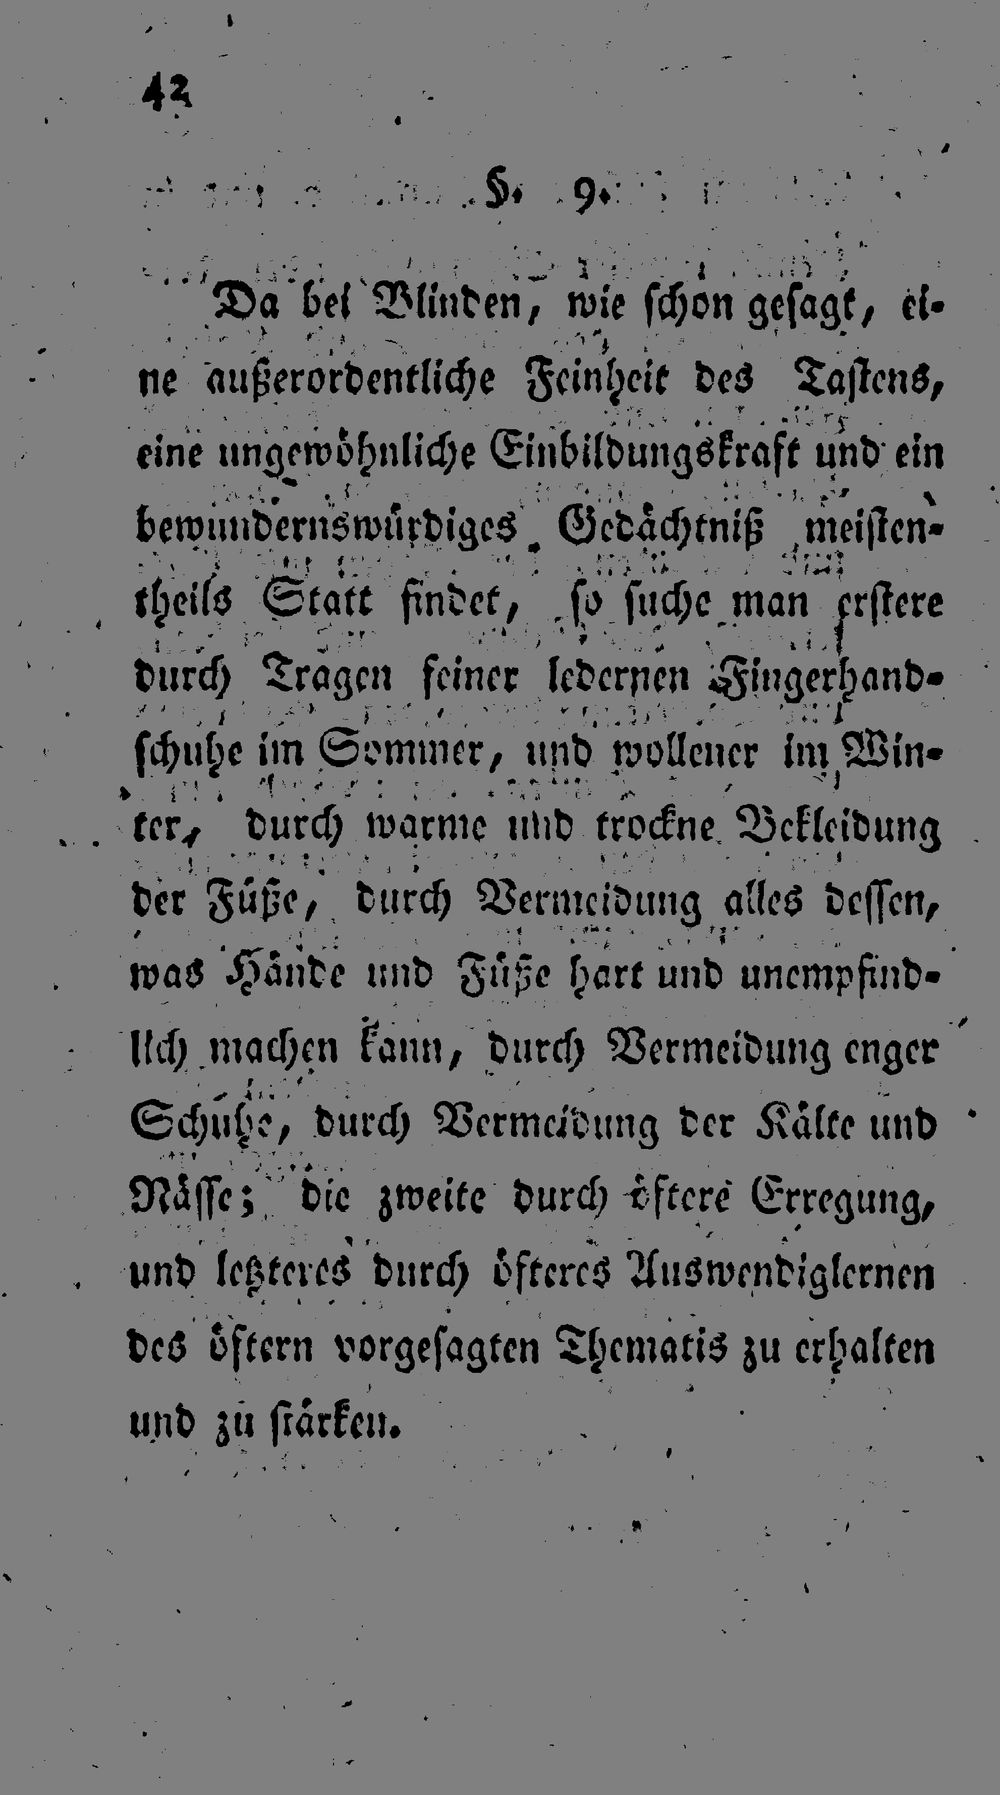 42
§. 9.
Da bei Blinden, wie schon gesagt, ei-
ne außerordentliche Feinheit des Tastens,
eine ungewöhnliche Einbildungskraft und ein
bewundernswürdiges Gedächtniß meisten-
theils Statt findet, so suche man erstere
durch Tragen feiner ledernen Fingerhand-
schuhe im Sommer, und wollener im Win-
ter, durch warme und trockne Bekleidung
der Füße, durch Vermeidung alles dessen,
was Hände und Füße hart und unempfind-
lich machen kann, durch Vermeidung enger
Schuhe, durch Vermeidung der Kälte und
Nässe; die zweite durch öftere Erregung,
und letzteres durch öfteres Auswendiglernen
des öftern vorgesagten Thematis zu erhalten
und zu stärken.